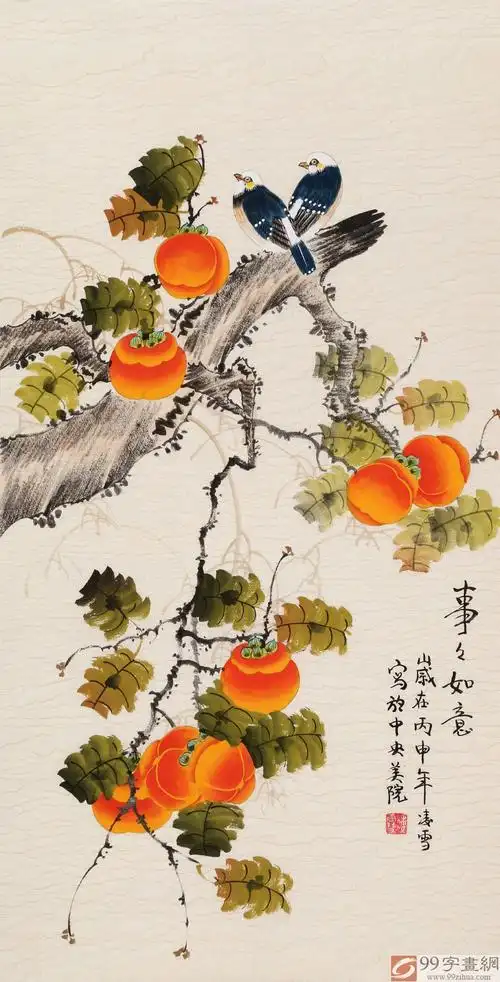 事々如意
嵗在丙申年凌雪
寫於中央美院
99字畫網
www.99zihua.com